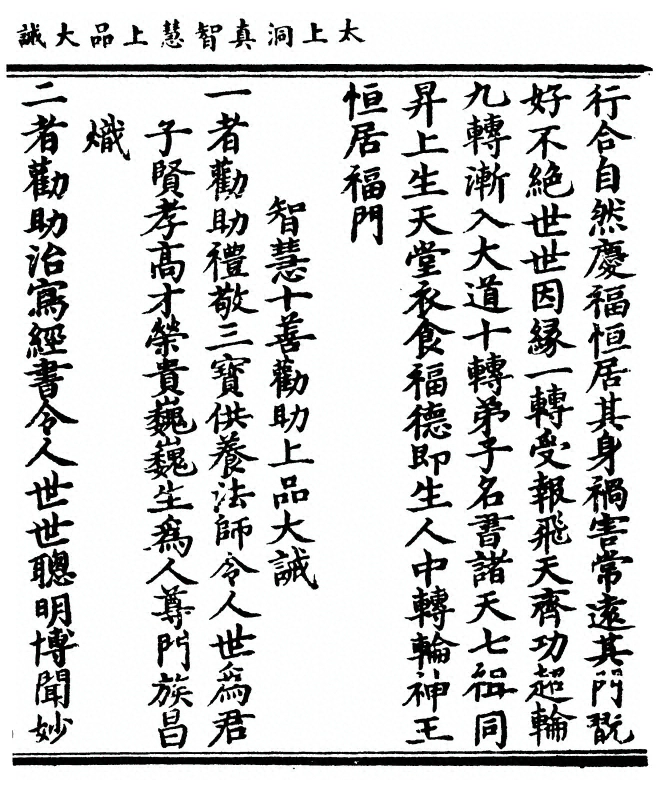 太上洞真智慧上品大誡
行合自然慶福恒居其身禍害常遠其門翫
好不絕世世因緣一轉受報飛天齊功超輪
九轉漸入大道十轉弟子名書諸天七祖同
昇上生天堂衣食福德即生人中轉輪神王
恒居福門
智慧十善勸助上品大誡
一者勸助禮敬三寶供養法師令人世爲君
子賢孝高才榮貴巍巍生爲人尊門族昌
熾
二者勸助治寫經書令人世世聰明博聞妙